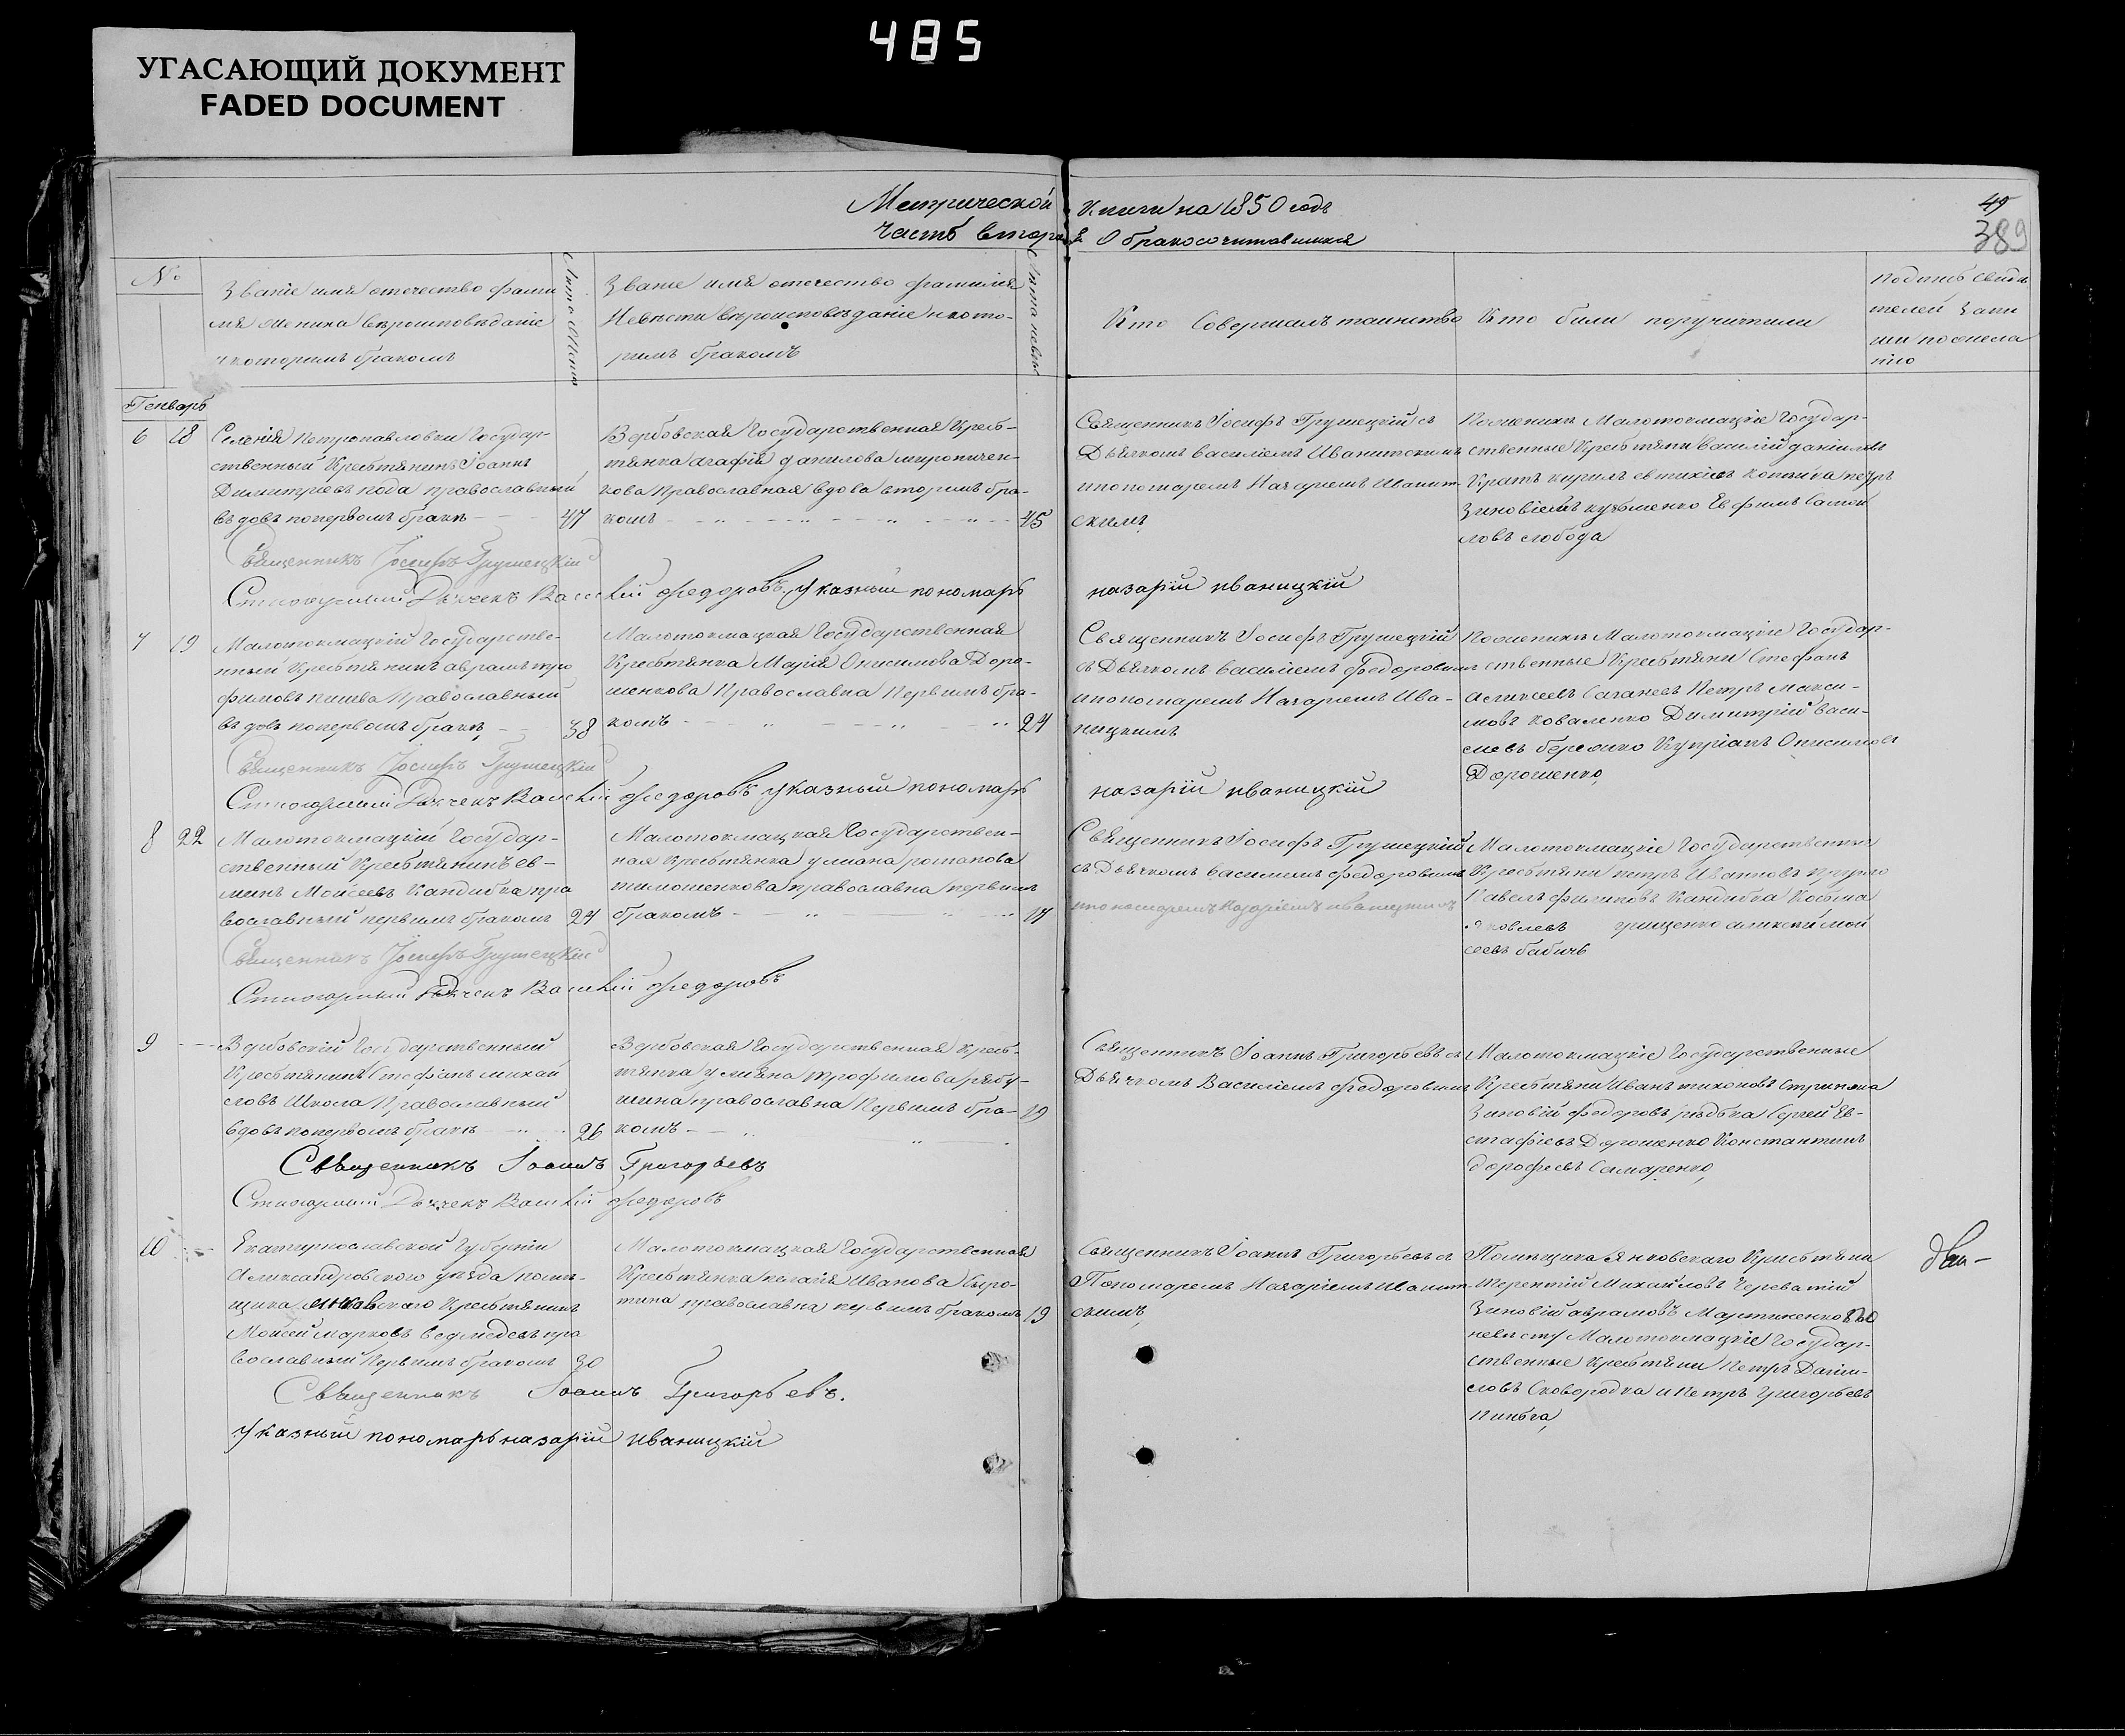 485
УГАСАЮЩИЙ ДОКУМЕНТ
FADED DOCUMENT
Метрической Книги на 1850 годъ
Часть вторая О бракосочитавшихся
49
389
№
Званіе имя отечество фами
лія жениха вѣроисповѣданіе
и которимъ бракомъ
Лѣта жениха
Званіе имя отечество фамилія
Невѣсти вѣроисповѣданіе и кото-
римъ бракомъ
Лѣта невѣсты
Кто Совершалъ таинство
Кто били поручители
подписъ свидѣ
телей запи
си по
Генварь
6 18
Селенія Петропавловки Государ-
ственный Крестьянинъ Іоаннъ
Димитріевъ православный
вдовъ по первомъ бракѣ 47
Вербовская Государственная Кресть-
тянка Агафія данилова
кова Православная вдова вторимъ бра-
комъ 45
Священникъ Іосифъ Грушецкій съ
Дьячкомъ василіемъ
и пономаремъ Назаріемъ Иванит-
скимъ
Малотокмацкіе Государ-
ственные Крестьяни василій даніиловъ
Кратъ кирилъ евтихіевъ петръ
зиновіевъ кузьменко Ефимъ Самой
ловъ слобода
Священникъ Іосифъ Грушецкій
Дьячекъ Василій Федоровъ Указный пономарь назарій иваницкій
7 19
Малотокмацкій Государстве-
нный Крестьянинъ аврамъ тро
фимовъ Православный
вдовъ по первомъ бракѣ 38
Малотокмацкая Государственная
Крестьянка Марія Онисимова Доро-
шенкова Православна Первимъ бра-
комъ 24
Священникъ Іосифъ Грушецкій
съ Дьячкомъ василіемъ Федоровимъ
и пономаремъ Назаріемъ Ива-
ницкимъ
Малотокмацкіе Государ-
ственные Крестьяни Стефанъ
алексеевъ Петръ Макси-
мовъ Коваленко Димитрій васи-
левъ Кипріанъ Онисимовъ
Дорошенко,
Священникъ Іосифъ Грушецкій
Дьячекъ Василій Федоровъ Указный пономарь назарій иваницкій
8 22
Малотокмацкій Государ-
ственный Крестьянинъ ев-
Моисеевъ Кандибка пра
вославный первимъ бракомъ 24
Малотокмацкая Государствен-
ная крестьянка улиана романова
тимошенкова православна первимъ
бракомъ 17
Священникъ Іосифъ Грушецкій
съ Дьячкомъ василіемъ федоровимъ
и пономаремъ Назаріемъ иваницкимъ
Малотокмацкіе Государственные
Крестьяни петръ Ивановъ
Павелъ филиповъ Кандибка Косьма
Яковлевъ грищенко алексѣй мой
сеевъ бабичъ
Священникъ Іосифъ Грушецкій
Дьячекъ Василій Федоровъ
9
Вербовскій Государственный
Крестьянинъ Стефанъ михай
ловъ Школа Православный
вдовъ по первомъ бракѣ 26
Вербовская Государственная Кресть-
тянка улиана трофимова рябу-
шина православна Первимъ бра- 19
комъ
Священникъ Іоаннъ Григорьевъ съ
Дьячкомъ Василіемъ Федоровимъ
Малотокмацкіе Государственные
Крестьяни Иванъ тихоновъ
Зиновій федоровъ Сергей Ев-
стафіевъ Дорошенко Константинъ
дорофеевъ Самаренко,
Священникъ Іоаннъ Григорьевъ
Дьячекъ Василій Федоровъ
10
Екатеринославской Губерніи
Александровского уѣзда помѣ-
щика Янковскаго Крестьянинъ
Мойсей марковъ ведмедевъ пра
вославный Первимъ бракомъ 30
Малотокмацкая Государственная
Крестьянка пелагія Иванова Сиро-
тина православна первимъ бракомъ 19
Священникъ Іоаннъ Григорьевъ съ
Пономаремъ Назаріемъ Иванит-
скимъ,
Помѣщика Янковскаго Крестьяни
терентій Михайловъ Череватій
Зиновій аврамовъ Мартиненко по
невѣсту Малотокмацкіе Государ-
ственные Крестьяни Петръ Дании-
ловъ Сковородка и Петръ григорьевъ
Священникъ Іоаннъ Григорьевъ.
Указный пономарь назарій иваницкій